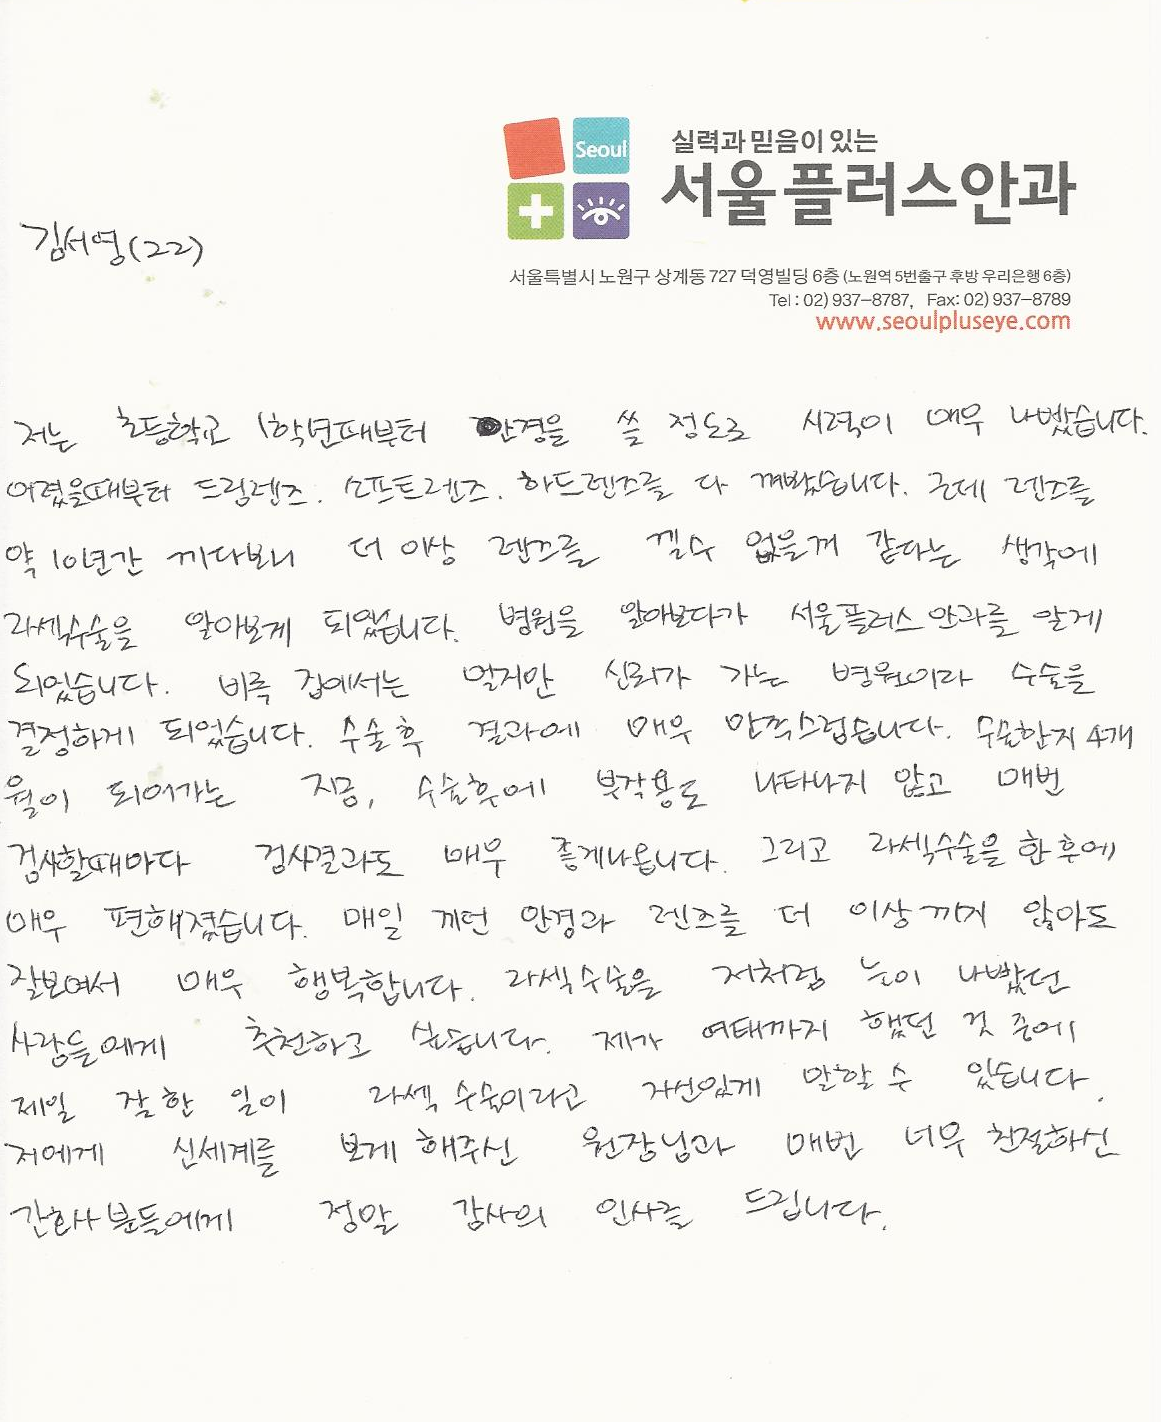 Seoul
실력과 믿음이 있는
서울플러스안과
김서영(22)
서울특별시 노원구 상계동 727 덕영빌딩 6층 (노원역 5번출구 후방 우리은행 6층)
Tel : 02) 937-8787, Fax: 02) 937-8789
www.seoulpluseye.com
저는 초등학교 1학년때부터 안경을 쓸 정도로 시력이 매우 나빴습니다.
어렸을때부터 드림렌즈. 소프트렌즈. 하드렌즈를 다 껴봤습니다. 근데 렌즈를
약 10년간 끼다보니 더 이상 렌즈를 낄수 없을꺼 같다는 생각에
라섹수술을 알아보게 되었습니다. 병원을 알아보다가 서울플러스안과를 알게
되었습니다. 비록 집에서는 멀지만 신뢰가 가는 병원이라 수술을
결정하게 되었습니다. 수술후 결과에 매우 만족스럽습니다. 수술한지 4개
월이 되어가는 지금, 수술후에 부작용도 나타나지 않고 매번
검사할때마다 검사결과도 매우 좋게나옵니다. 그리고 라섹수술을 한 후에
매우 편해졌습니다. 매일 끼던 안경과 렌즈를 더 이상 끼지 않아도
잘보여서 매우 행복합니다. 라섹수술을 저처럼 눈이 나빴던
사람들에게 추천하고 싶습니다. 제가 여태까지 했던 것 중에
제일 잘한 일이 라섹 수술이라고 자신있게 말할 수 있습니다.
저에게 신세계를 보게 해주신 원장님과 매번 너무 친절하신
간호사분들에게 정말 감사의 인사를 드립니다.